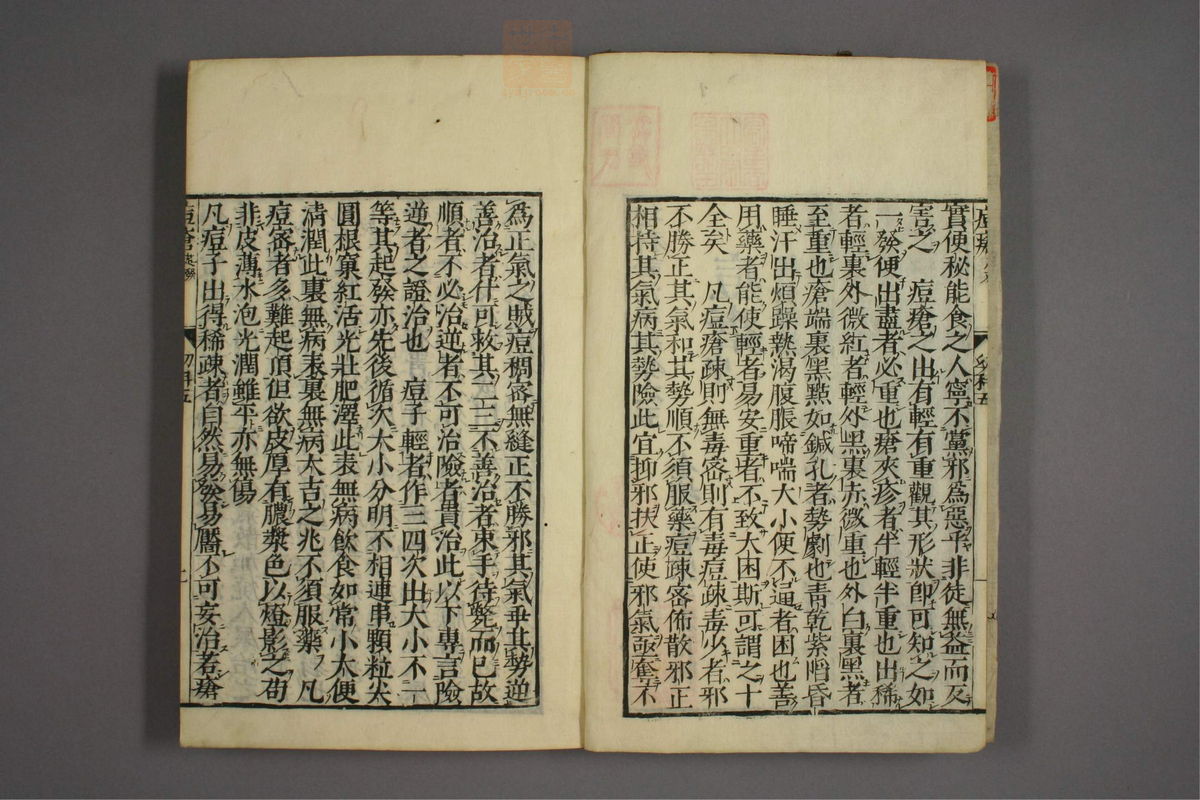 實便秘能食之人寧不黨邪為惡乎非徒無益而反
害之　痘瘡之出有輕有重觀其形狀即可知之如
一發便出盡者必重也瘡夾疹者半輕半重也出稀
者輕裏外微紅者輕外黑裏赤微重也外白裏黑者
至重也瘡端裏黑點如鍼孔者勢劇也青乾紫陷昏
睡汗出煩躁熱渴腹脹啼喘大小便不通者困也善
用藥者能使輕者易安重者不致太困斯可謂之十
全矣　凡痘瘡疎則無毒密則有毒痘疎毒少者邪
不勝正其氣和其勢順不須服藥痘疎密佈散邪正
相持其氣病其勢險此宜抑邪扶正使邪氣亟奪不
幼科五
為正氣之賊痘稠密無縫正不勝邪其氣乖其勢逆
善治者什可救其二三不善治者束手待斃而已故
順者不必治逆者不可治險者貴治此以下專言險
逆者之證治也　痘子輕者作三四次出大小不一
等其起發亦先後循次大小分明不相連串顆粒尖
圓根窠紅活光壯肥澤此表無病飲食如常小大便
清潤此裏無病表裏無病大吉之兆不須服藥　凡
痘密者多難起頂但欲皮厚有膿漿色以燈影之苟
非皮薄水泡光潤雖平亦無傷
凡痘子出得稀疎者自然易發易靨不可妄治若瘡
痘瘡
幼科五